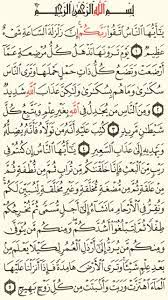 بِسْمِ ٱللَّهِ ٱلرَّحْمَٰنِ ٱلرَّحِيمِ
يَٰٓأَيُّهَا ٱلنَّاسُ ٱتَّقُوا۟ رَبَّكُمْ إِنَّ زَلْزَلَةَ ٱلسَّاعَةِ شَىْءٌ
عَظِيمٌ ١ يَوْمَ تَرَوْنَهَا تَذْهَلُ كُلُّ مُرْضِعَةٍ عَمَّآ
أَرْضَعَتْ وَتَضَعُ كُلُّ ذَاتِ حَمْلٍ حَمْلَهَا وَتَرَى ٱلنَّاسَ
سُكَٰرَىٰ وَمَا هُم بِسُكَٰرَىٰ وَلَٰكِنَّ عَذَابَ ٱللَّهِ شَدِيدٌ
٢ وَمِنَ ٱلنَّاسِ مَن يُجَٰدِلُ فِى ٱللَّهِ بِغَيْرِ عِلْمٍ وَيَتَّبِعُ كُلَّ
شَيْطَٰنٍ مَّرِيدٍ ٣ كُتِبَ عَلَيْهِ أَنَّهُۥ مَن تَوَلَّاهُ فَأَنَّهُۥ يُضِلُّهُۥ
وَيَهْدِيهِ إِلَىٰ عَذَابِ ٱلسَّعِيرِ ٤ يَٰٓأَيُّهَا ٱلنَّاسُ إِن كُنتُمْ
فِى رَيْبٍ مِّنَ ٱلْبَعْثِ فَإِنَّا خَلَقْنَٰكُم مِّن تُرَابٍ ثُمَّ مِن
نُّطْفَةٍ ثُمَّ مِنْ عَلَقَةٍ ثُمَّ مِن مُّضْغَةٍ مُّخَلَّقَةٍ وَغَيْرِ مُخَلَّقَةٍ لِّنُبَيِّنَ
لَكُمْ وَنُقِرُّ فِى ٱلْأَرْحَامِ مَا نَشَآءُ إِلَىٰٓ أَجَلٍ مُّسَمًّى ثُمَّ نُخْرِجُكُمْ
طِفْلًا ثُمَّ لِتَبْلُغُوٓا۟ أَشُدَّكُمْ وَمِنكُم مَّن يُتَوَفَّىٰ وَمِنكُم
مَّن يُرَدُّ إِلَىٰٓ أَرْذَلِ ٱلْعُمُرِ لِكَيْلَا يَعْلَمَ مِنۢ
بَعْدِ عِلْمٍ شَيْـًٔا وَتَرَى ٱلْأَرْضَ هَامِدَةً فَإِذَآ أَنزَلْنَا عَلَيْهَا
ٱلْمَآءَ ٱهْتَزَّتْ وَرَبَتْ وَأَنۢبَتَتْ مِن كُلِّ زَوْجٍۭ بَهِيجٍ ٥